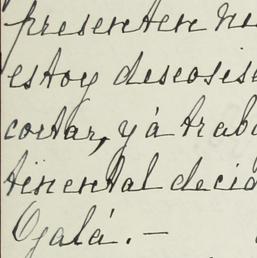 presenten no
estoy deseosis
cortar, y á trab
tinental decid
Ojalá. —